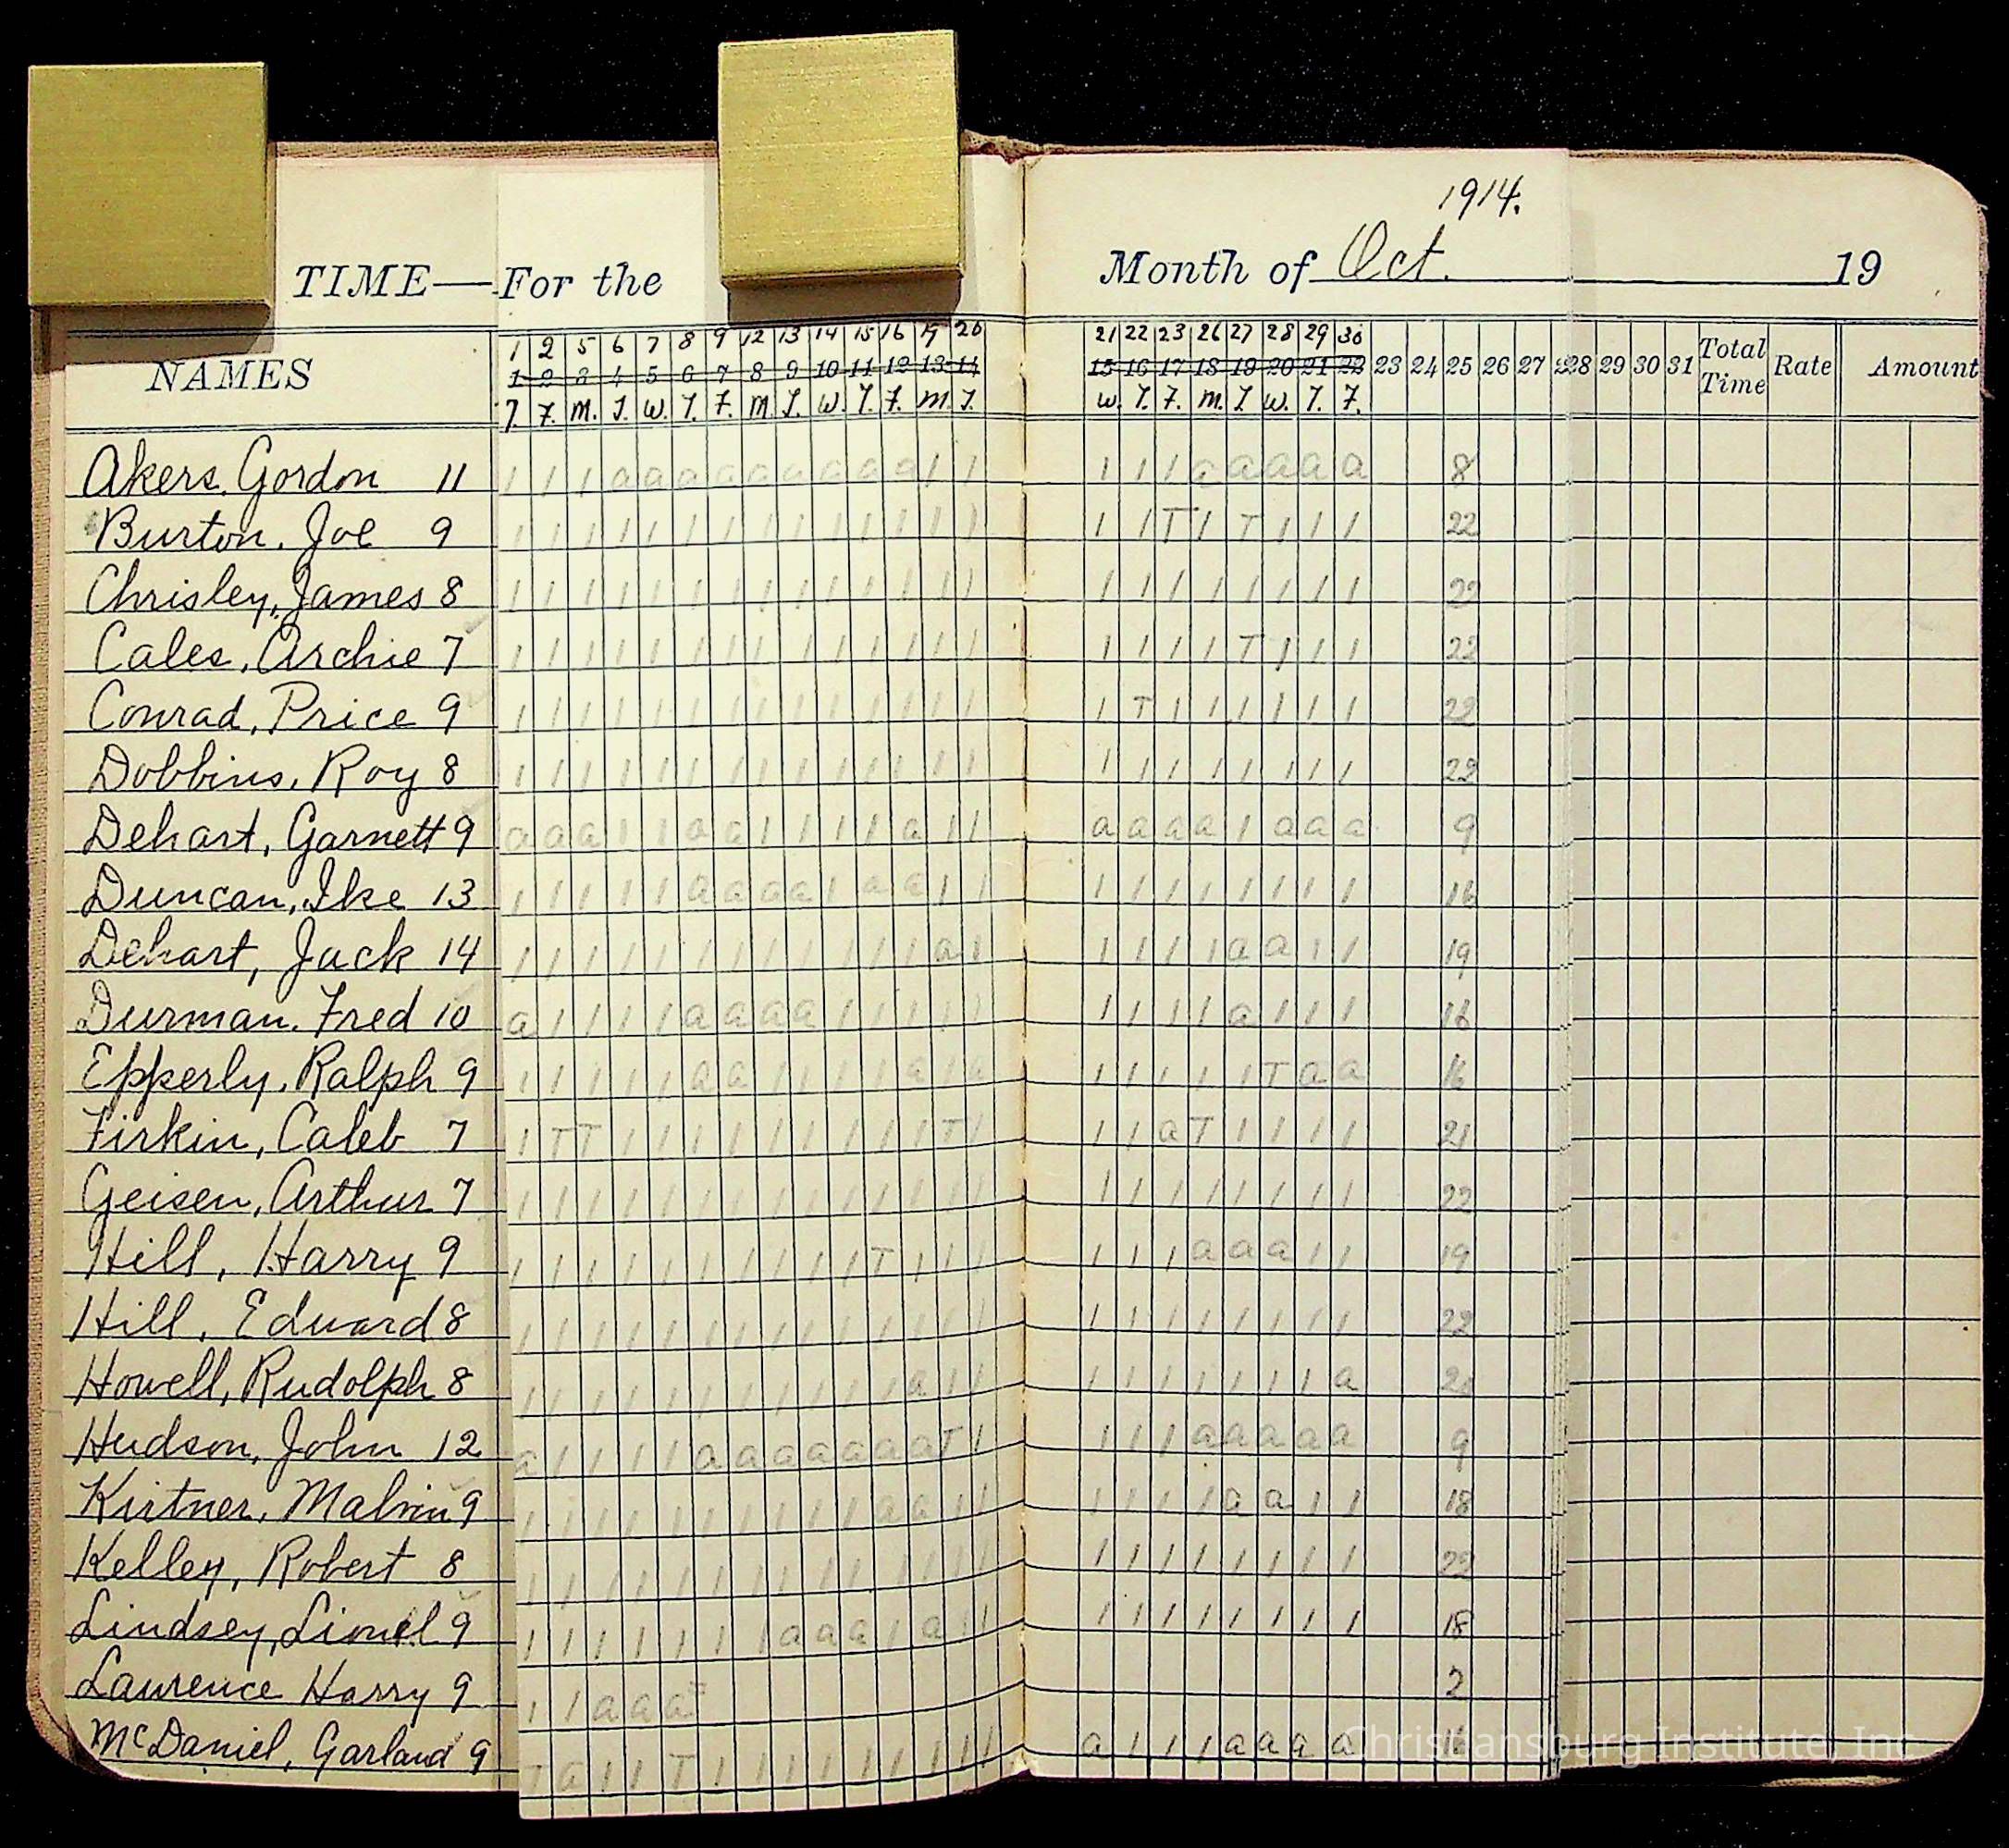 1914.
TIME—For the Month of Oct. 19
1 2 5 6 7 8 9 12 13 14 15 16 19 20 21 22 23 26 27 28 29 30
NAMES 1 2 3 4 5 6 7 8 9 10 11 12 13 14 15 16 17 18 19 20 21 22 23 24 25 26 27 28 29 30 31 Total Time Rate Amount
T. F. M. T. W. T. F. M T. W. T. F. M. T. W. T. F. M. T W. T. F.
Akers, Gordon 11 1 1 1 a a a a a a a a a 1 1 1 1 1 a a a a a 8
Burton, Joe 9 1 1 1 1 1 1 1 1 1 1 1 1 1 1 1 1 T 1 T 1 1 1 22
Chrisley, James 8 1 1 1 1 1 1 1 1 1 1 1 1 1 1 1 1 1 1 1 1 1 1 22
Cales, Archie 7 1 1 1 1 1 1 1 1 1 1 1 1 1 1 1 1 1 1 T 1 1 1 22
Conrad, Price 9 1 1 1 1 1 1 1 1 1 1 1 1 1 1 1 T 1 1 1 1 1 1 22
Dobbins, Roy 8 1 1 1 1 1 1 1 1 1 1 1 1 1 1 1 1 1 1 1 1 1 1 22
Dehart, Garnett 9 a a a 1 1 1 a a 1 1 1 1 a 1 1 a a a a 1 a a a 9
Duncan, Ike 13 1 1 1 1 1 a a a a 1 a a 1 1 1 1 1 1 1 1 1 1 16
Dehart, Jack 14 1 1 1 1 1 1 1 1 1 1 1 1 a 1 1 1 1 1 a a 1 1 19
Durman. Fred 10 a 1 1 1 1 a a a a 1 1 1 1 1 1 1 1 1 a 1 1 1 16
Epperly, Ralph 9 1 1 1 1 1 a a 1 1 1 1 a 1 a 1 1 1 1 1 T a a 16
Firkin, Caleb 7 1 T T 1 1 1 1 1 1 1 1 1 T 1 1 1 a T 1 1 1 1 21
Geisen, Arthur 7 1 1 1 1 1 1 1 1 1 1 1 1 1 1 1 1 1 1 1 1 1 1 22
Hill, Harry 9 1 1 1 1 1 1 1 1 1 1 T 1 1 1 1 1 1 a a a 1 1 19
Hill, Edward 8 1 1 1 1 1 1 1 1 1 1 1 1 1 1 1 1 1 1 1 1 1 1 22
Howell, Rudolph 8 1 1 1 1 1 1 1 1 1 1 1 a 1 1 1 1 1 1 1 1 1 a 20
Hudson, John 12 a 1 1 1 1 a a a a a a a T 1 1 1 1 a a a a a 9
Kirtner, Malvin 9 1 1 1 1 1 1 1 1 1 1 a a 1 1 1 1 1 1 a a 1 1 18
Kelley, Robert 8 1 1 1 1 1 1 1 1 1 1 1 1 1 1 1 1 1 1 1 1 1 1 22
Lindsey, Lionel 9 1 1 1 1 1 1 1 1 a a a 1 a 1 1 1 1 1 1 1 1 1 1 18
Laurence Harry 9 1 1 a a a 2
McDaniel, Garland 9 T a 1 1 T 1 1 1 1 1 1 1 1 1 a 1 1 1 a a a a 16
Christiansburg Institute, Inc